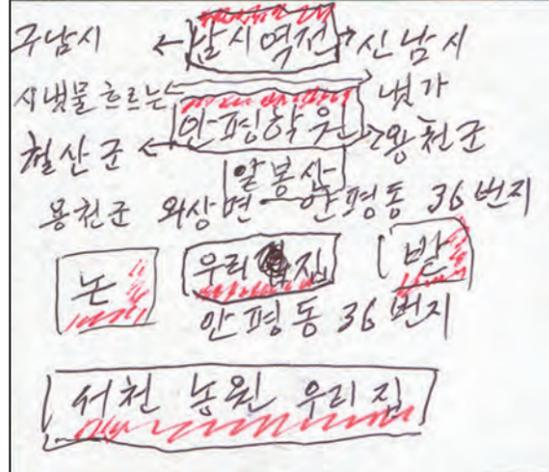 구남시 ← 남시역전 → 신남시
시냇물 흐르는 냇가
철산군 ← 안평학원 → 용천군
앞봉산
용천군 외상면 안평동 36번지
논 우리 집 밭
안평동 36번지
서천 농원 우리 집